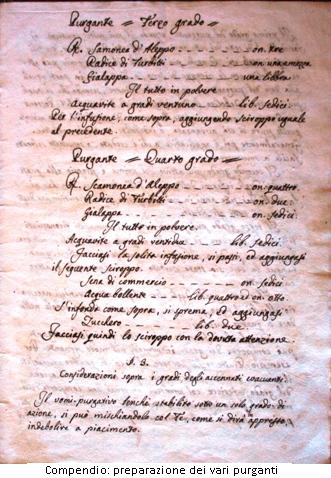 Purgante = Terzo grado =
R. Samonea d'Aleppo on. tre
Radice di Turbitti on una mezza
Gialappa una libbra
Il tutto in polvere
Acquavite a gradi ventuno lib. sedici
Per l'infusione, come sopra, aggiungendo sciroppo uguale
al precedente.
Purgante = Quarto grado =
R. Scamonea d'Aleppo on. quattro
Radice di Turbitti on. due
Gialappa on. sedici
Il tutto in polvere.
Acquavite a gradi ventidue lib. sedici
Facciasi la solita infusione, si passi, ed aggiungasi
il seguente sciroppo.
Sena di commercio on. sedici
Acqua bollente lib. quattro ed on. otto
S'infonda come sopra, si sprema, ed aggiungasi
Zucchero lib. due
Facciasi quindi lo sciroppo con la dovuta attenzione
§. 3.
Considerazioni sopra i gradi degli accennati evacuanti.
Il vomi-purgativo benchè stabilito sotto un solo grado di
azione, si può mischiandolo col Tè, come si dirà in appresso,
indebolire a piacimento.
Compendio: preparazione dei vari purganti